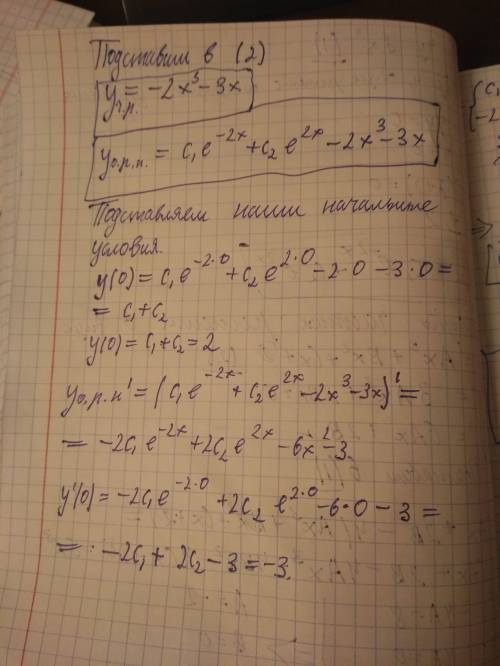 Подставим в (2)
y ч.р. = -2x³ - 3x
y о.р.н. = c₁e^(-2x) + c₂e^(2x) - 2x³ - 3x
Подставляем наши начальные
условия.
y(0) = c₁e^(-2·0) + c₂e^(2·0) - 2·0 - 3·0 =
= c₁ + c₂
y(0) = c₁ + c₂ = 2
y о.р.н' = (c₁e^(-2x) + c₂e^(2x) - 2x³ - 3x)' =
= -2c₁e^(-2x) + 2c₂e^(2x) - 6x² - 3.
y'(0) = -2c₁e^(-2·0) + 2c₂ e^(2·0) - 6·0 - 3 =
= -2c₁ + 2c₂ - 3 = -3.
{c₁
-2
⇒